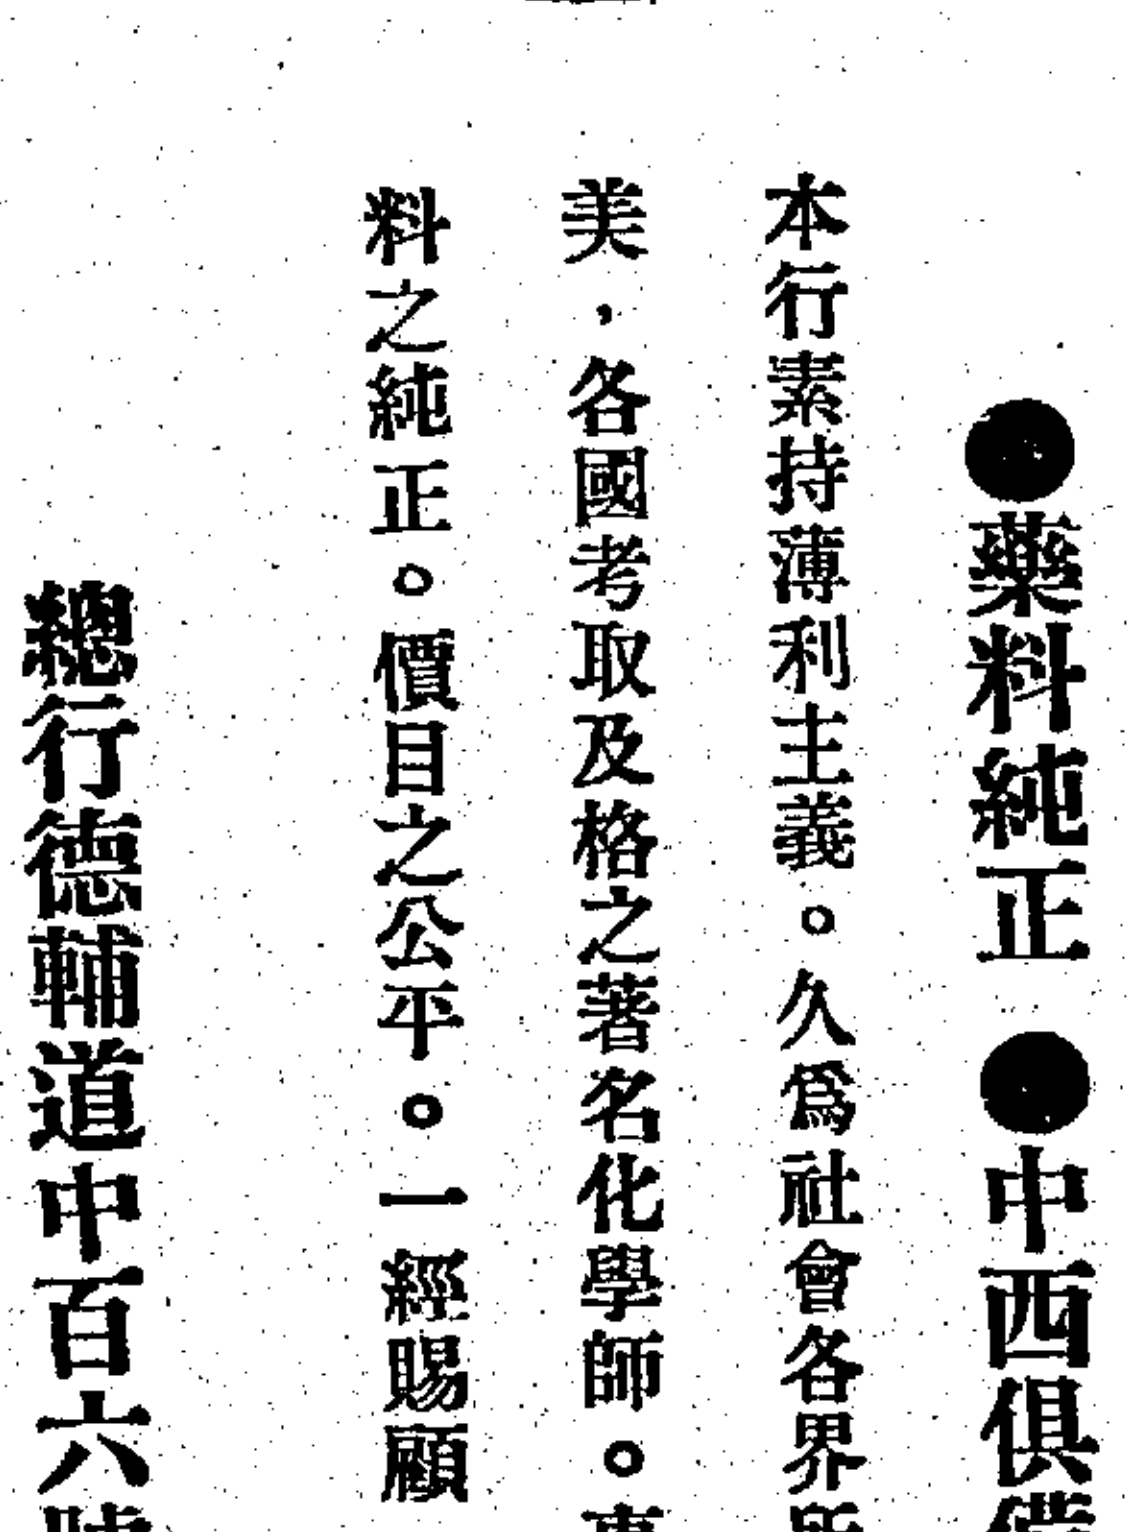 ●藥料純正 ●中西俱備
本行素持薄利主義。久爲社會各界所
美，各國考取及格之著名化學師。專
料之純正。價目之公平。一經賜顧
總行德輔道中百六號